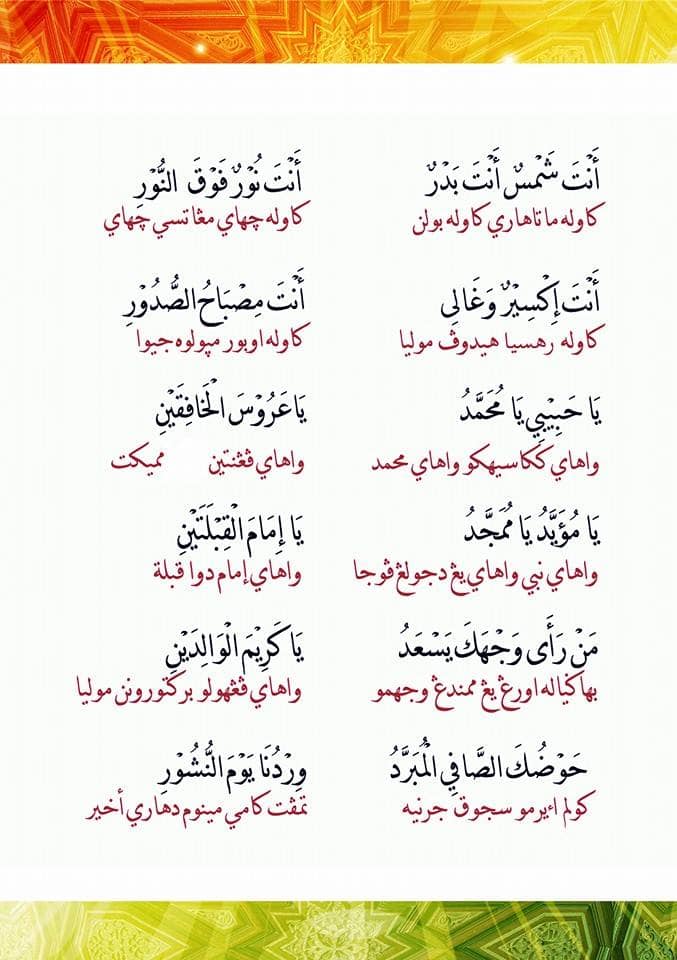 أَنْتَ شَمْسٌ أَنْتَ بَدْرٌ
أَنْتَ نُوْرٌ فَوْقَ النُّوْرِ
كاوله ماتاهاري كاوله بولن
كاوله چهاي مڠاتسي چهاي
أَنْتَ إِكْسِيْرٌ وَغَالِى
أَنْتَ مِصْبَاحُ الصُّدُوْرِ
كاوله رهسيا هيدوڤ موليا
كاوله اوبور مڽولوه جيوا
يَا حَبِيْبِي يَا مُحَمَّدُ
يَا عَرُوْسَ الْخَافِقَيْنِ
واهاي ككاسيهكو واهاي محمد
واهاي ڤڠنتين مميكت
يَا مُؤَيَّدُ يَا مُمَجَّدُ
يَا إِمَامَ الْقِبْلَتَيْنِ
واهاي نبي واهاي يڠ دجولڠ ڤوجا
واهاي إمام دوا قبلة
مَنْ رَأَى وَجْهَكَ يَسْعَدُ
يَا كَرِيْمَ الْوَالِدَيْنِ
بهاݢياله اورڠ يڠ ممندڠ وجهمو
واهاي ڤڠهولو بركتورونن موليا
حَوْضُكَ الصَّافِي الْمُبَرَّدُ
وِرْدُنَا يَوْمَ النُّشُوْرِ
كولم اءيرمو سجوق جرنيه
تمڤت كامي مينوم دهاري أخير